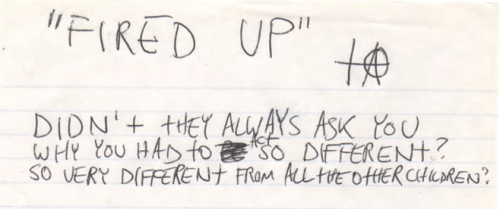 "FIRED UP" tA
DIDN't tHEY ALWAYS ASK YOU
WHY YOU HAD to Act SO DIFFERENT?
SO VERY DIFFERENT FROM ALL THE OTHER CHILDREN?